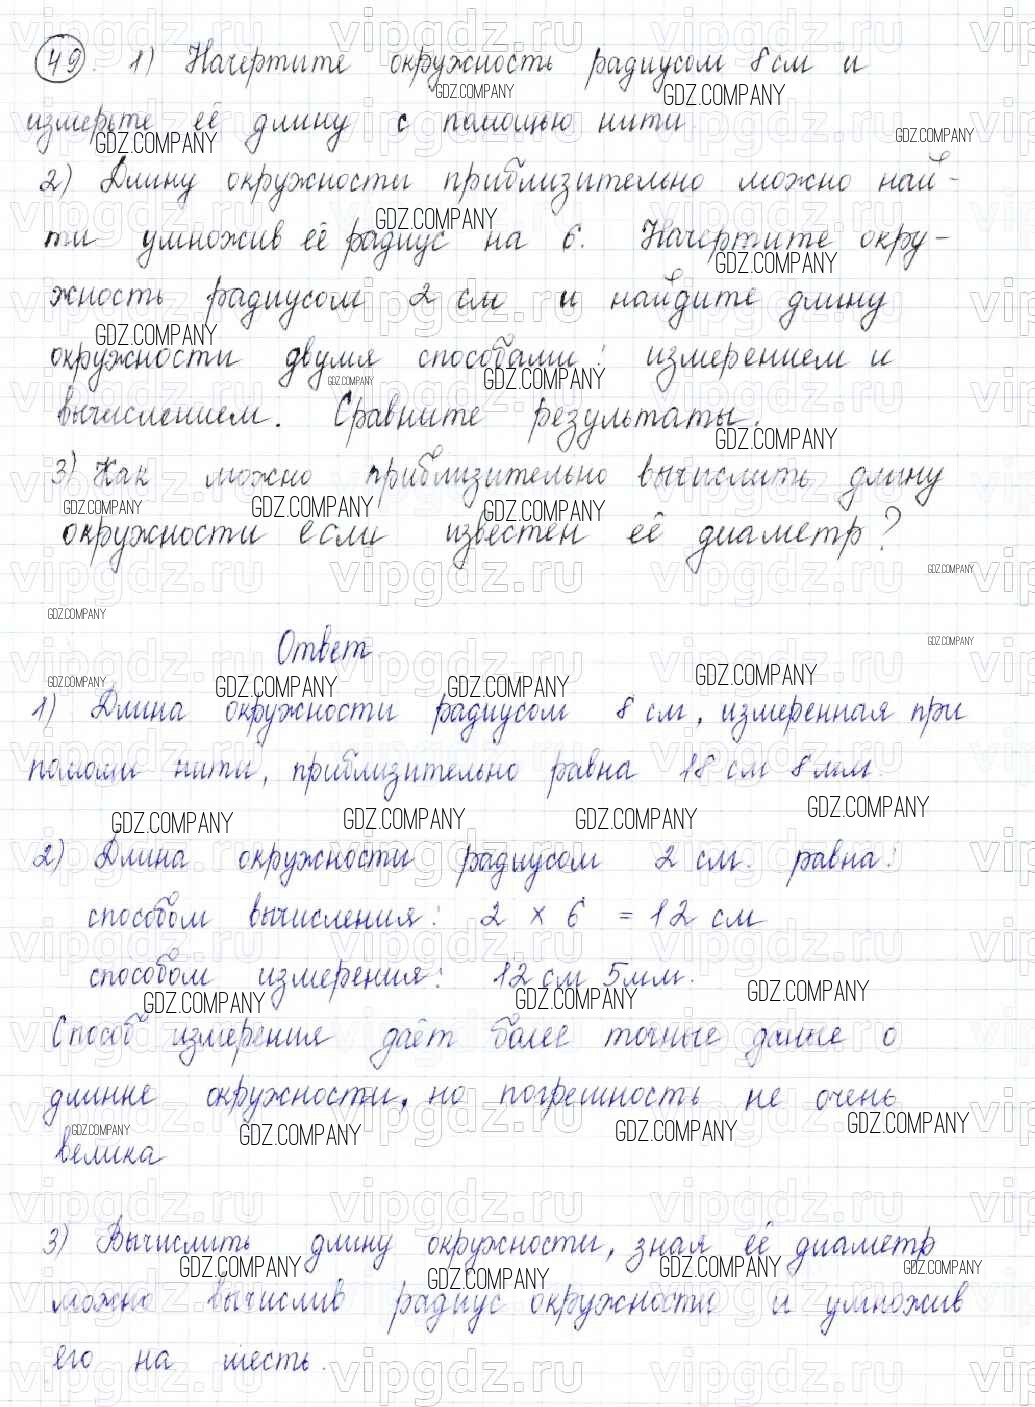 49. 1) Начертите окружность радиусом 8 см и
измерьте её длину с помощью нити
2) Длину окружности приблизительно можно най-
ти умножив её радиус на 6. Начертите окру-
жность радиусом 2 см и найдите длину
окружности двумя способами: измерением и
вычислением. Сравните результаты.
3) Как можно приблизительно вычислить длину
окружности если известен её диаметр?
Ответ
1) Длина окружности радиусом 8 см, измеренная при
помощи нити, приблизительно равна 18 см 8 мм.
2) Длина окружности радиусом 2 см. равна:
способом вычисления: 2 × 6 = 12 см
способом измерения: 12 см 5 мм.
Способ измерения даёт более точные данные о
длинне окружности, но погрешность не очень
велика
3) Вычислить длину окружности, зная её диаметр
можно вычислив радиус окружности и умножив
его на шесть.
vipgdz.ru
GDZ.COMPANY